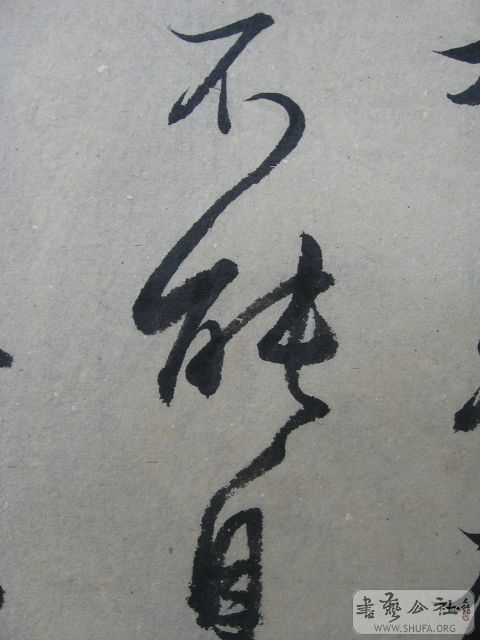 不能自
書藝公社
WWW.SHUFA.ORG